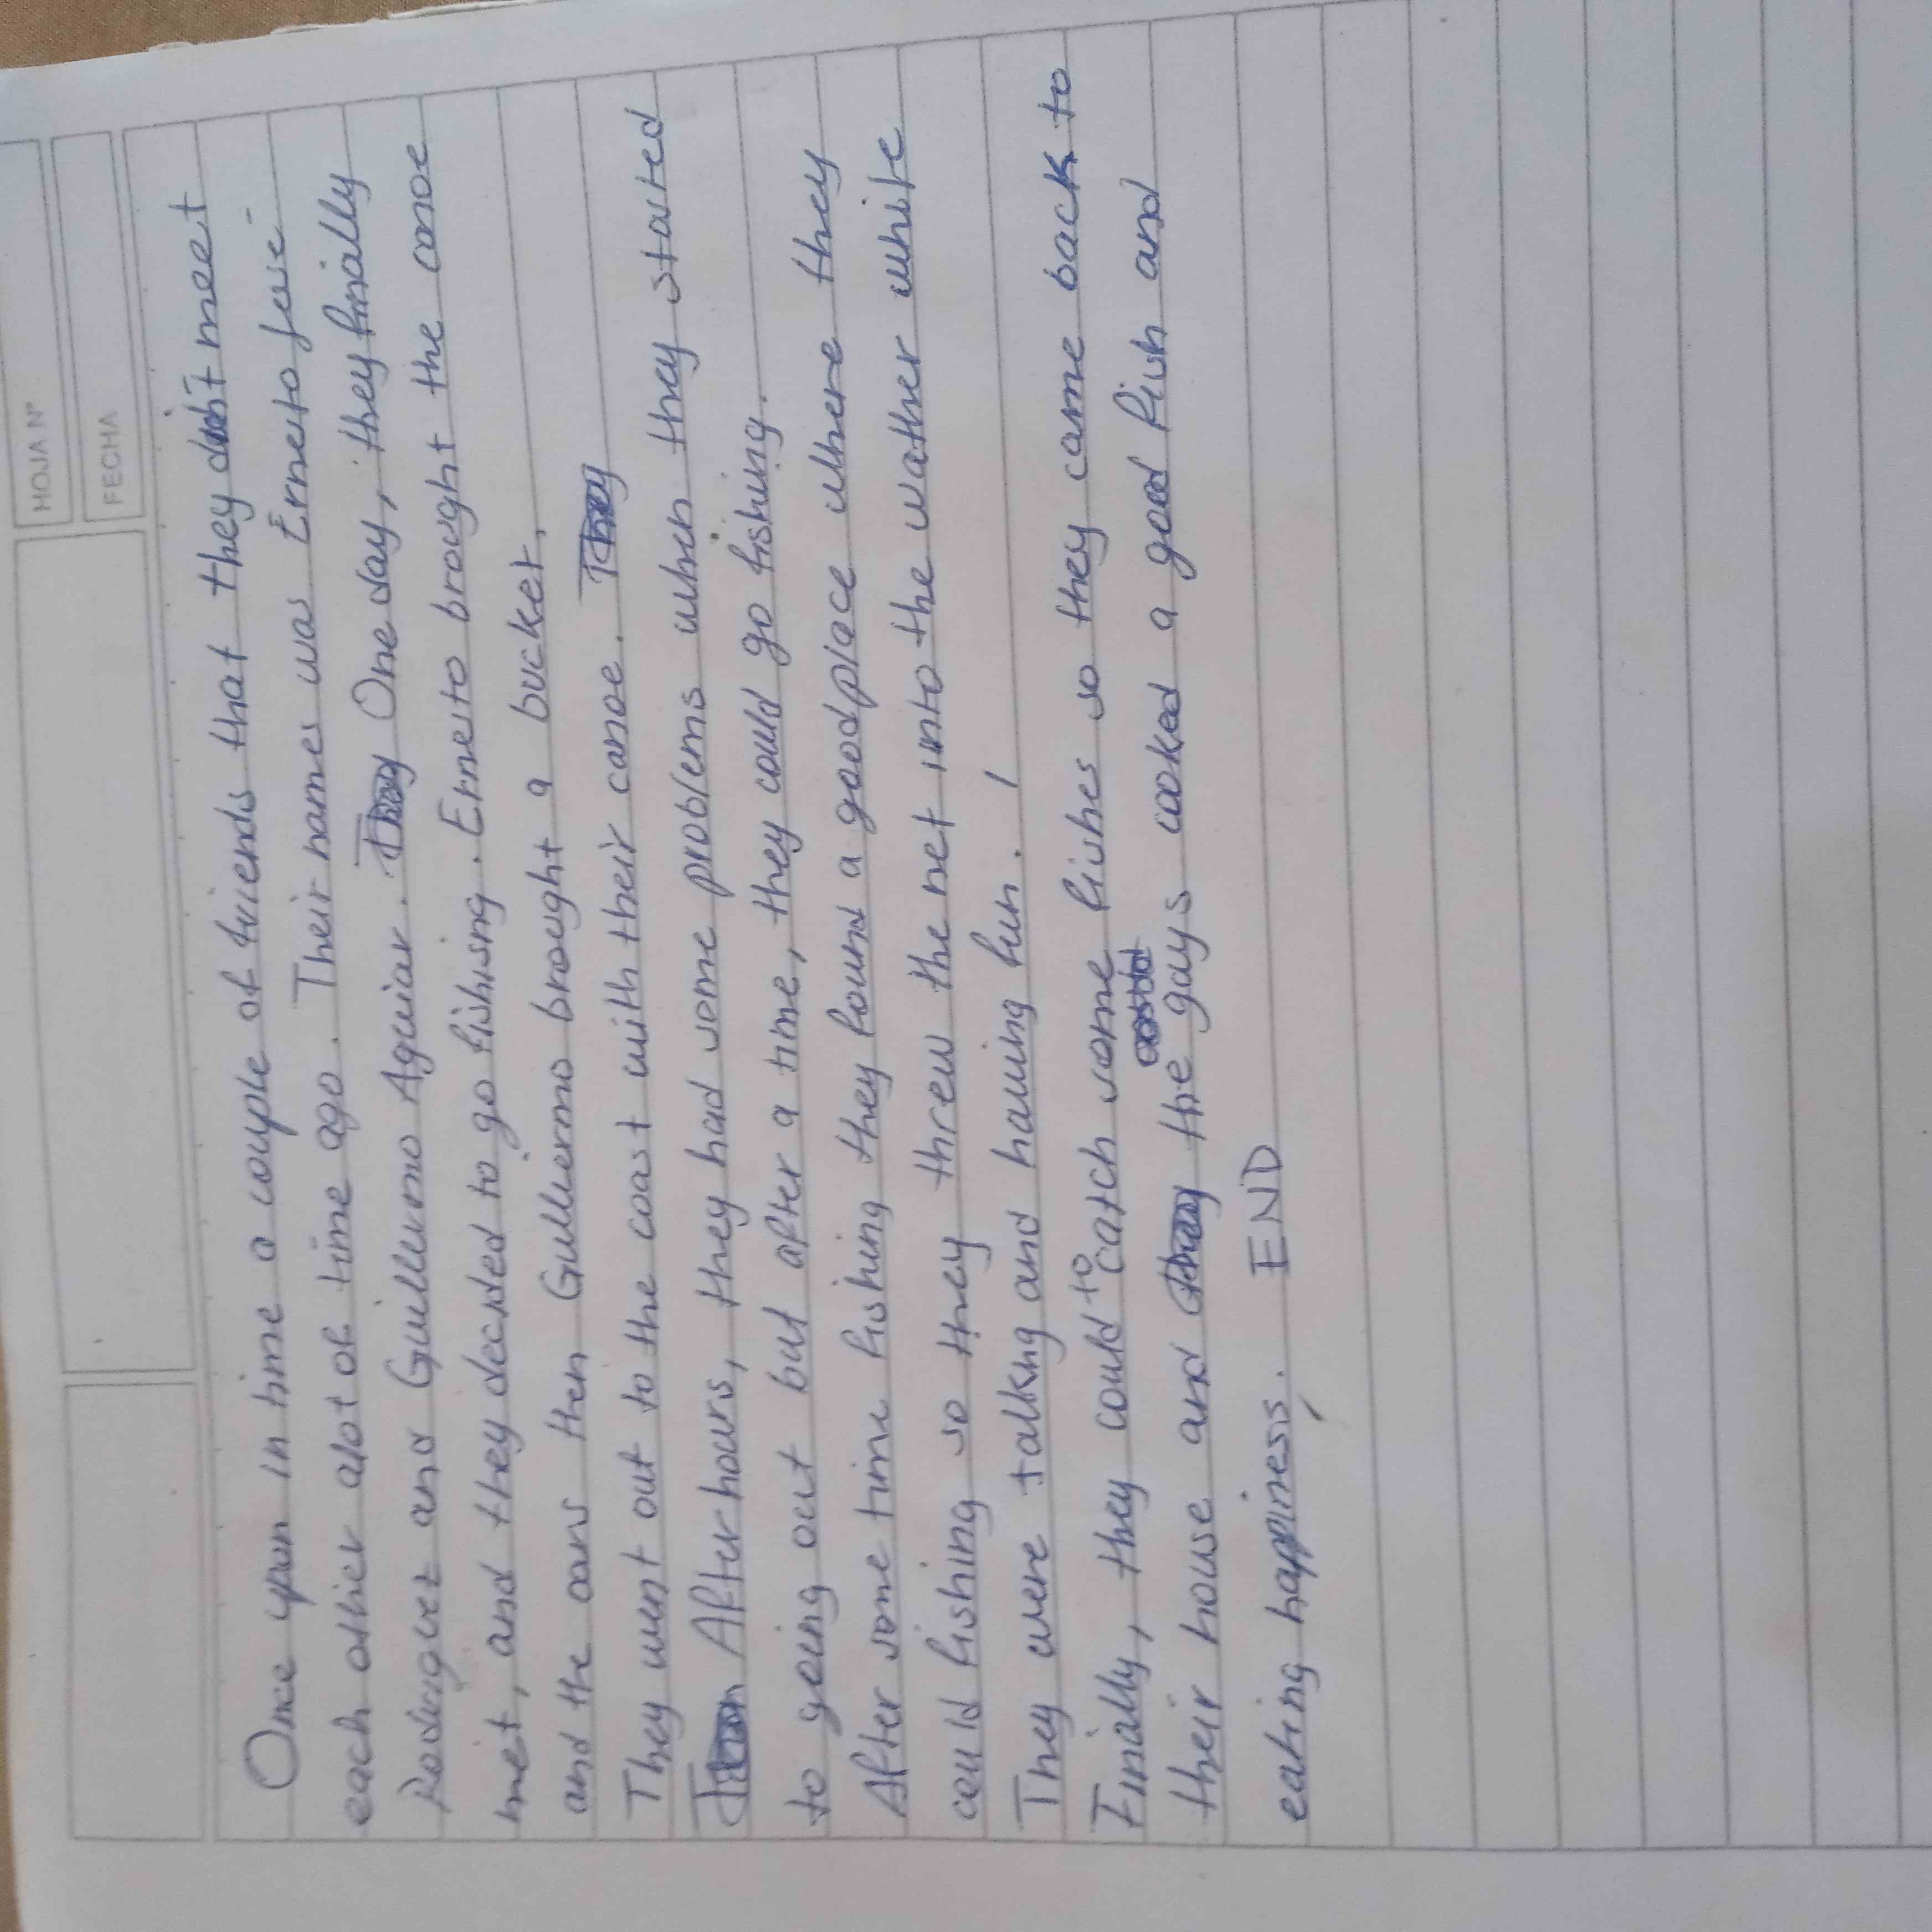 HOJA N°
FECHA
Once upon in time a couple of friends that they didn't meet
each other alot of time ago. Their names was Ernesto Jose
Rodriguez and Guillermo Aguiar. They One day, they finally
met, and they decided to go fishing. Ernesto brought the canoe
and the oars then Guillermo brought a bucket.
They went out to the coast with their canoe. They
After hours, they had some problems when they started
to going out but after a time, they could go fishing.
After some time fishing they found a good place where they
could fishing so they threw the net into the wather white
They were talking and having fun. /
Finally, they could to catch some fishes so they came back to
their house and they the guys cooked a good fish and
eating happiness. END